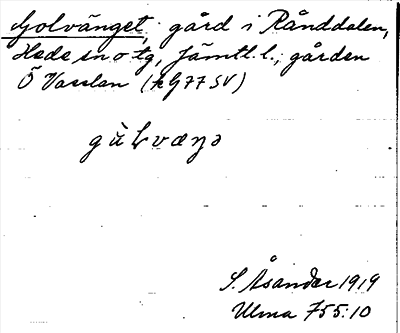 Golvänget, gård i Rånddalen,
Hede sn o tg, Jämtl. l., gården
Ö Vasslan (k G77 SV)
gùɫvæŋə
S. Åsander 1919
Ulma 755:10